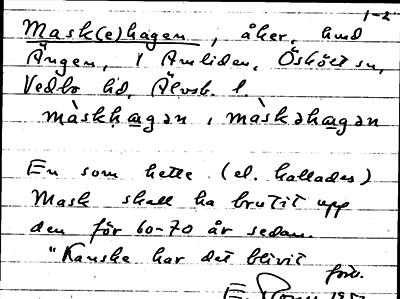 1-2
Mask(e)hagen, åker, hmd
Ängen, i Amliden, Öxhölt sn,
Vedbo hd, Älvsb. l.
màskhagən, màskəhagən
En som hette (el. kallades)
Mask skall ha brutit upp
den för 60-70 år sedan.
"Kanske har det blivit
forts.
E.